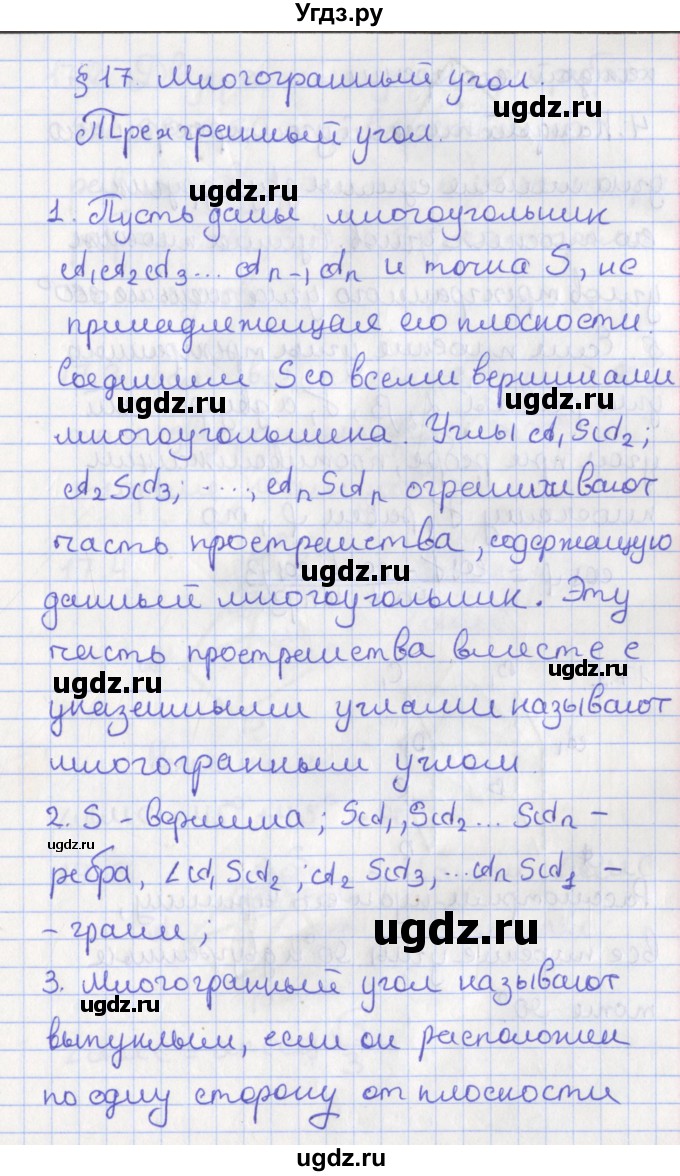 Угдз.ру
§ 17. Многогранный угол.
Трехгранный угол.
1. Пусть даны многоугольник
A₁A₂A₃... Aₙ₋₁Aₙ и точка S, не
принадлежащая его плоскости.
Соединим S со всеми вершинами
многоугольника. Углы A₁SA₂;
A₂SA₃; ...., AₙSAₙ ограничивают
часть пространства, содержащую
данный многоугольник. Эту
часть пространства вместе с
указанными углами называют
многогранным углом
2. S - вершина; SA₁, SA₂... SAₙ -
ребра, ∠A₁SA₂; A₂SA₃, ...AₙSA₁ -
- грани;
3. Многогранный угол называют
выпуклым, если он расположен
по одну сторону от плоскости
ugdz.ru
ugdz.ru
ugdz.ru
ugdz.ru
ugdz.ru
ugdz.ru
ugdz.ru
ugdz.ru
ugdz.ru
ugdz.ru
ugdz.ru
ugdz.ru